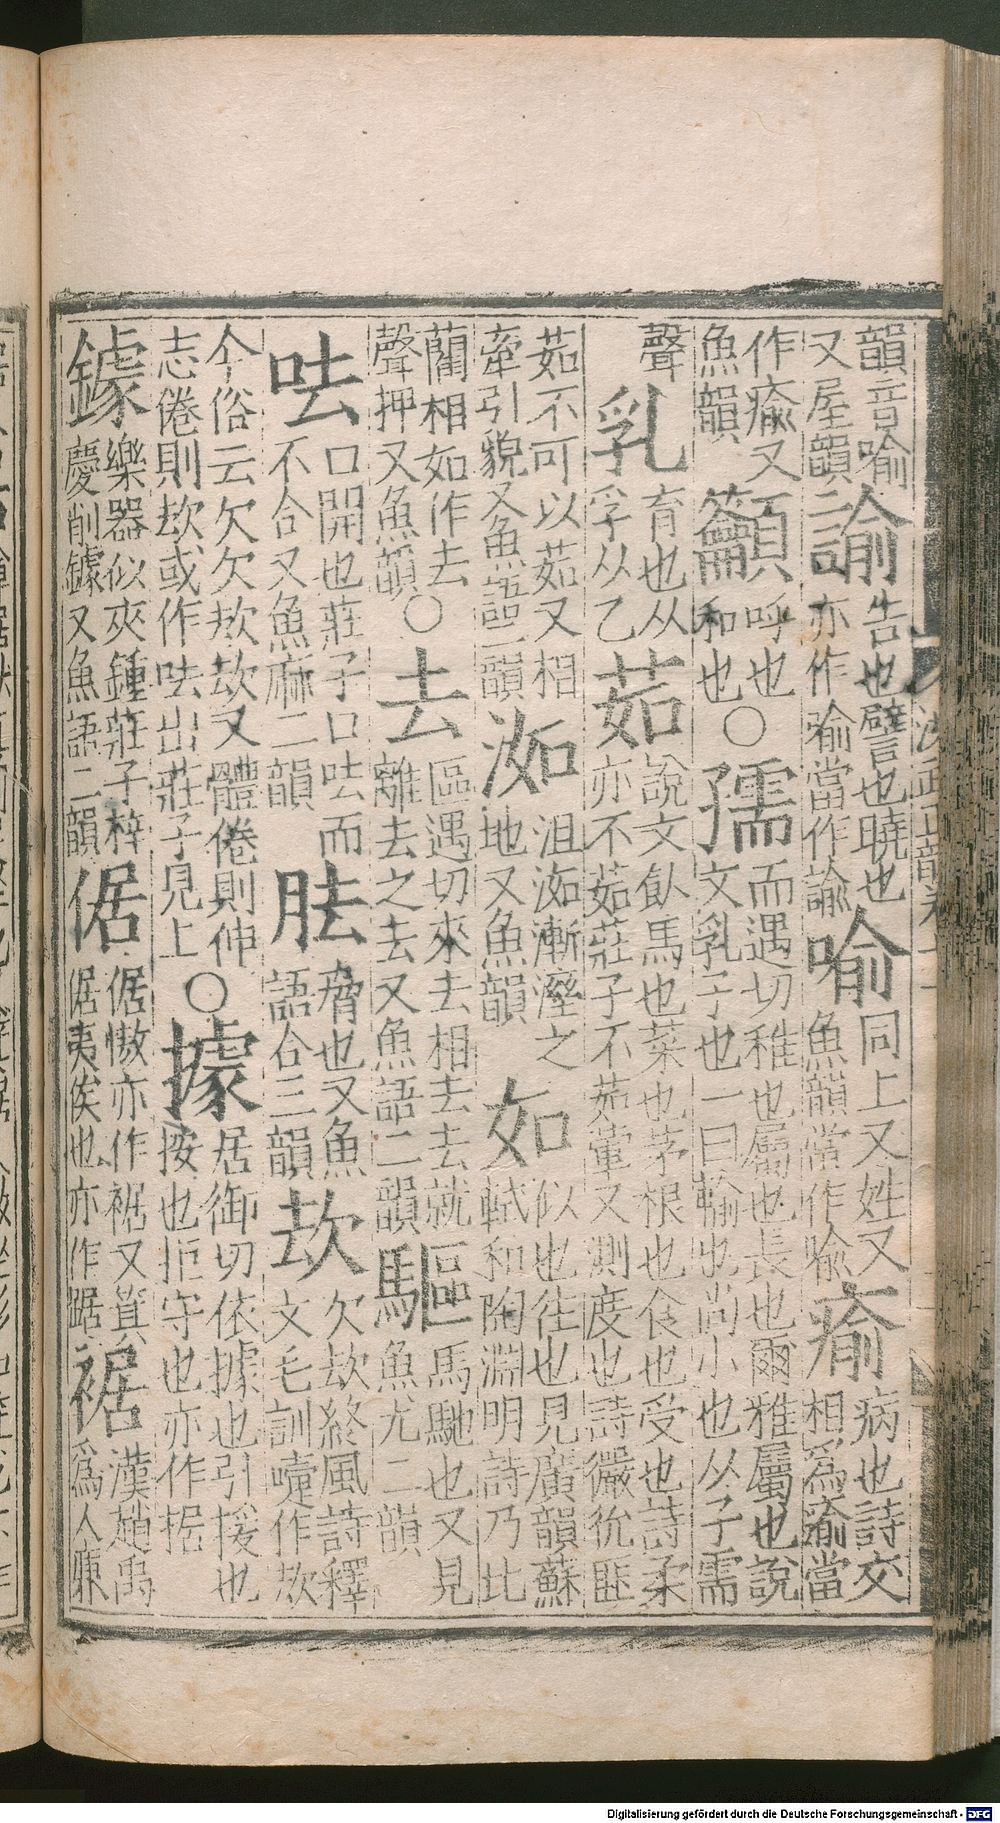 韻音喻諭告也譬也曉也喻同上又姓又瘉病也詩交
又屋韻二亦作喻當作諭魚韻當作喻相爲瘉當
作瘉又籲呼也○孺而遇切稚也屬也長也爾雅屬也說
魚韻和也文乳子也一曰輸也尚小也从子需
聲乳育也从茹說文飤馬也菜也茅根也食也受也詩柔
孚从乙亦不茹莊子不茹葷又測度也詩玁狁匪
茹不可以茹又相洳沮洳漸溼之如似也往也見廣韻蘇
牽引貌又魚語二韻地又魚韻軾和陶淵明詩乃比
藺相如作去○去區遇切來去相去去就驅馬馳也又見
聲押又魚韻離去之去又魚語二韻魚尤二韻
呿口開也莊子口呿而胠脅也又魚㰦欠㰦終風詩釋
不合又魚麻二韻語合三韻文毛訓嚏作㰦
今俗云欠欠㰦㰦又體倦則伸○據居御切依據也引援也
志倦則㰦或作呿出莊子見上按也拒守也亦作据
鐻樂器似夾鍾莊子梓倨倨慠亦作裾又箕裾漢趙禹
慶削鐻又魚語二韻倨夷俟也亦作踞爲人廉
Digitalisierung gefördert durch die Deutsche Forschungsgemeinschaft - DFG